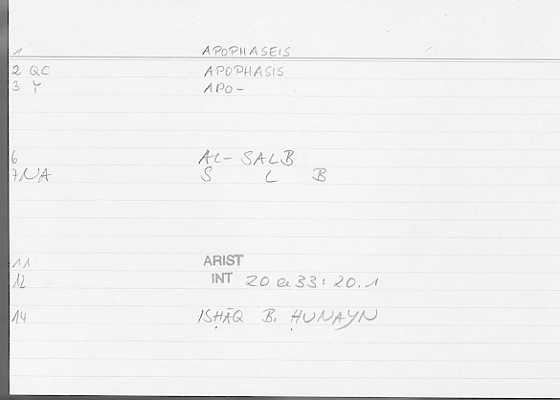 1 APOPHASEIS
2 QC APOPHASIS
3 Y APO-
6 AL-SALB
7NA S L B
11 ARIST
12 INT 20a33:20.1
14 ISḤĀQ B. ḤUNAYN